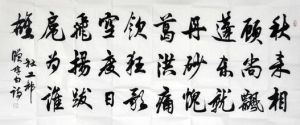 秋来相
顾尚飘
蓬未就
丹砂愧
葛洪痛
饮狂歌
空度日
飞扬跋
扈为谁
雄
杜工部